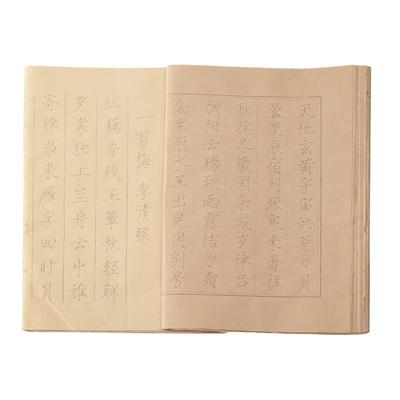 天地玄黄宇宙洪荒日月
盈昃辰宿列张寒来暑往
秋收冬藏闰余成岁律吕
调阳云腾致雨露结为霜
金生丽水玉出昆冈剑号
一剪梅 李清照
红藕香残玉簟秋轻解
罗裳独上兰舟云中谁
寄锦书来雁字回时月